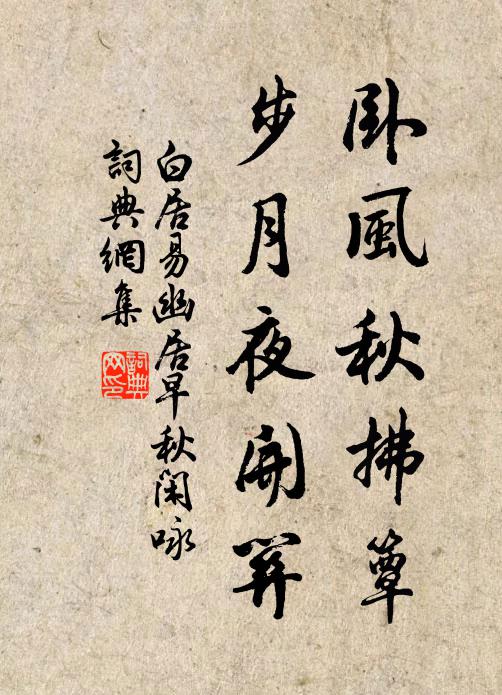 卧風秋拂簟
步月夜開關
白居易幽居早秋閑咏
詞典網集
詞典
网印